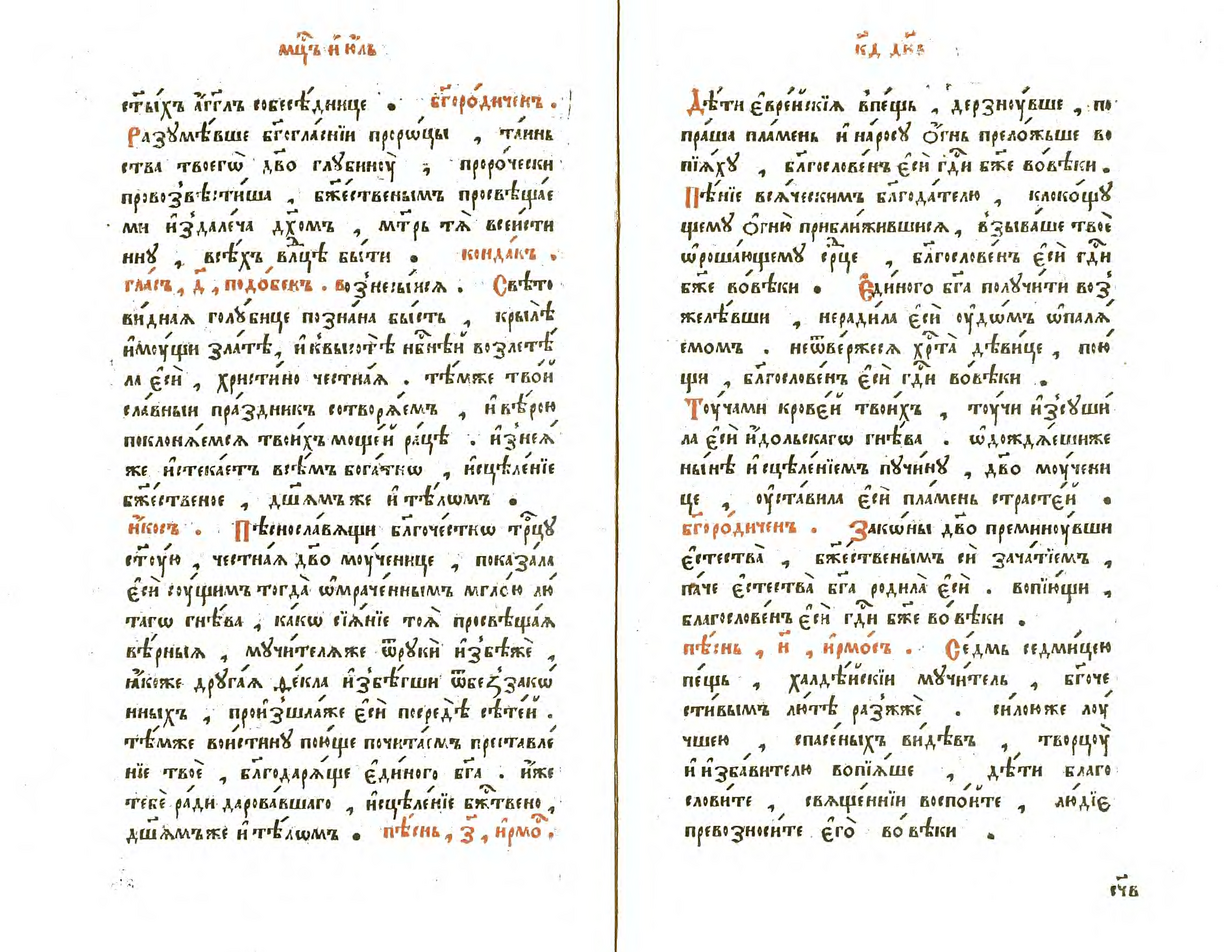 мцⷭ҇ъ и҆ ю҆ль
ст҃ы́хъ а҆́гг҃лъ собесѣ́днице . бг҃оро́диченъ .
Разꙋмѣ́вше бг҃огла́снїи проро́цы , та́инь
ства твоегѡ̀ дв҃о глꙋбинꙋ̀ , проро́чески
провозвѣ:ти́ша , бж҃е́ственымъ просвѣща́е
ми и҆здале́ча дх҃омъ , мт҃рь тѧ̀ всеи́сти
ннꙋ , всѣ́хъ влⷣцѣ бы́ти . конда́къ .
гла́съ , д҃ , подо́бенъ . вознесы́исѧ . Свѣто
ви́днаѧ голꙋ́бице позна́на бы́сть , крылѣ̀
и҆мꙋ́щи зла́тѣ , и҆ квысотѣ̀ нб҃нѣй возлетѣ́
ла є҆сѝ , христи́но че́стнаѧ . тѣ́мже тво́й
сла́вныи пра́здникъ сотворѧ́емъ , и҆ вѣ́рою
поклонѧ́емсѧ твои́хъ моще́й ра́цѣ . и҆знеѧ́
же и҆стека́етъ всѣ́мъ бога́тнѡ , и҆сцѣле́нїе
бж҃е́ственое , дш҃а́мъ же и҆ тѣлѡ́мъ .
и҆́косъ . Пѣснословѧ́щи бл҃гоче́стнѡ трⷪ҇цꙋ
ст҃ꙋ́ю , че́стнаѧ дв҃о мꙋ́ченице , показа́ла
є҆сѝ сꙋ́щимъ тогда̀ ѡ҆мраче́ннымъ мгло́ю лю́
тагѡ гнѣ́ва , ка́кѡ сїѧ́нїе тоѧ̀ просвѣща́ѧ
вѣ́рныѧ , мꙋчи́телѧже ѿрꙋкѝ и҆збѣжѐ ,
ꙗ҆́коже дрꙋга́ѧ ѳе́кла и҆збѣ́гши ѿбеззакѡ́
нныхъ , произшла́же є҆сѝ посредѣ̀ сѣ́тей .
тѣ́мже вои́стинꙋ пою́ще почита́емъ преставле́
нїе твоѐ , бл҃годарѧ́ще є҆ди́ного бг҃а . и҆́же
тебѐ ра́ди дарова́вшаго , и҆сцѣле́нїе бж҃твено ,
дш҃а́мъ же и҆ тѣлѡ́мъ . пѣ́снь , з҃ , и҆рмо́ .
к҃д дн҃ь
Дѣ́ти є҆вре́йскїѧ впе́щь , дерзнꙋ́вше , по
пра́ша пла́мень и҆ наро́сꙋ ѻ҆́гнь прело́жьше во
пїѧ́хꙋ , бл҃гослове́нъ є҆сѝ гдⷭ҇и бж҃е вовѣ́ки .
Пѣ́нїе всѧ́ческимъ бл҃года́телю , клоко́щꙋ
щемꙋ ѻ҆гню̀ прибли́жившисѧ , взыва́ше твоѐ
ѡ҆роша́ющемꙋ срⷣце , бл҃гослове́нъ є҆сѝ гдⷭ҇и
бж҃е вовѣ́ки . Є҆ди́ного бг҃а полꙋчи́ти воз
желѣ́вши , неради́ла є҆сѝ ᲂу҆дѡ́мъ ѡ҆палѧ́
емомъ . неѿве́ржесѧ хрⷭ҇та̀ дѣви́це , пою́
щи , бл҃гослове́нъ є҆сѝ гдⷭ҇и вовѣ́ки .
Тꙋ́чами крове́й твои́хъ , тꙋ́чи и҆зсꙋши́
ла є҆сѝ и҆́дольскагѡ гнѣ́ва . ѡ҆дождѧ́ешиже
ны́нѣ и҆сцѣле́нїемъ пꙋчи́нꙋ , дв҃о мꙋ́чени
це , ᲂу҆ста́вила є҆сѝ пла́мень страсте́й .
бг҃оро́диченъ . Зако́ны дв҃о преминꙋ́вши
є҆стества̀ , бж҃е́ственымъ си́ зача́тїемъ ,
па́че є҆стества̀ бг҃а родила̀ є҆сѝ . вопїю́щи ,
благослове́нъ є҆сѝ гдⷭ҇и бж҃е вовѣ́ки .
пѣ́снь , и҃ , и҆рмо́съ . Се́дмь седми́цею
пе́щь , халдѣ́йскїи мꙋчи́тель , бг҃оче
сти́вымъ лю́тѣ разжжѐ . си́лоюже лꙋ́
чшею , спасе́ныхъ ви́дѣвъ , творцꙋ̀
и҆ и҆зба́вителю вопїѧ́ше , дѣ́ти благо
слови́те , свѧще́ннїи воспо́йте , лю́дїе
превозноси́те є҆го̀ вовѣ́ки .
сч҃в